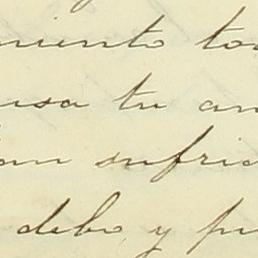 miento to
usa tu am
an sufrid
debo y pu